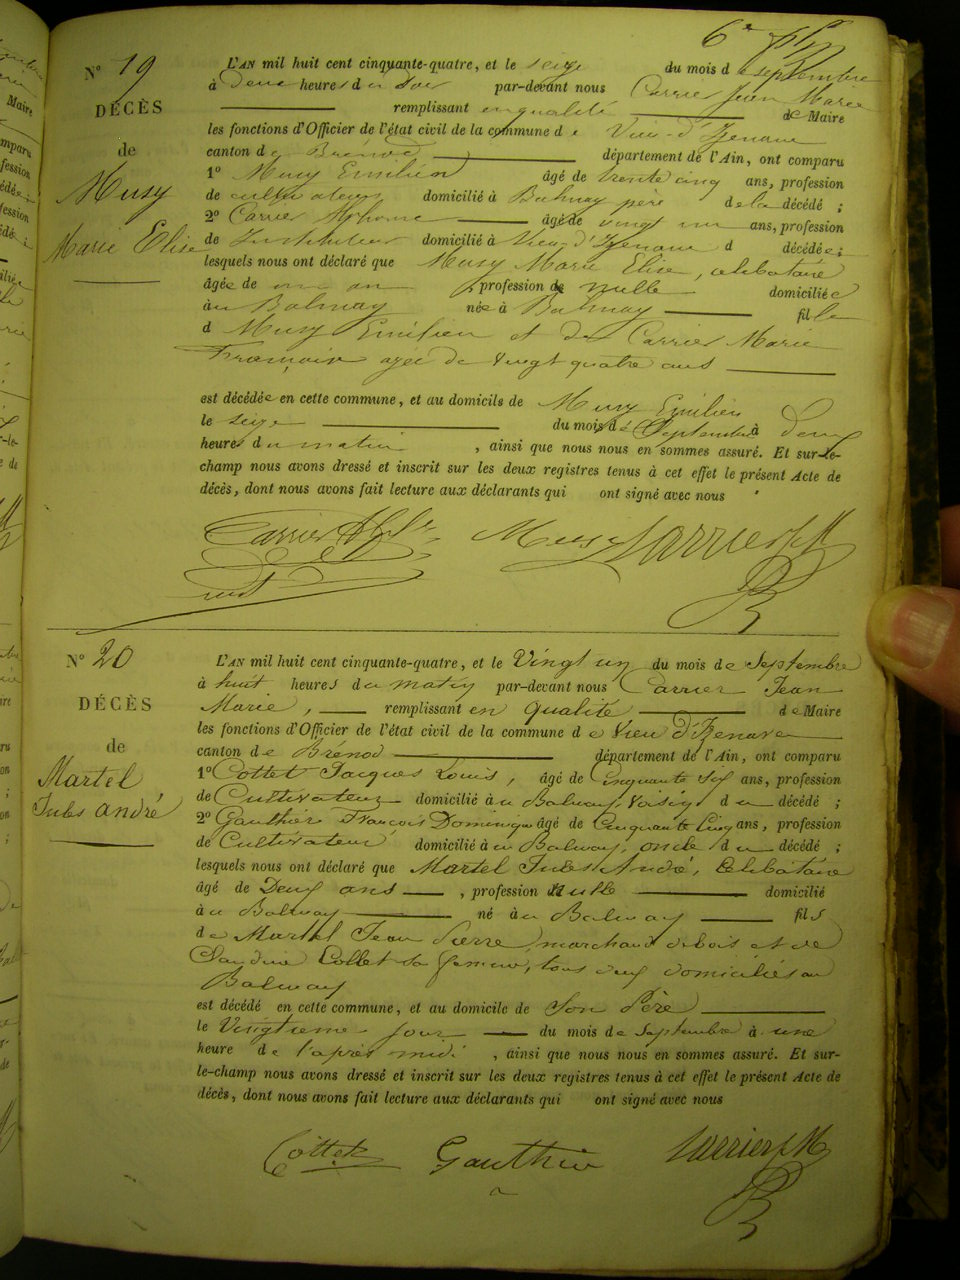 6e
N° 19
DÉCÈS
de
Musy
Marie Elise
L'AN mil huit cent cinquante-quatre, et le seize du mois de septembre
à Deux heures du Soir par-devant nous Carrier Jean Marie
remplissant en qualité de Maire
les fonctions d'Officier de l'état civil de la commune de Vieu-d'Izenave
canton de Brénod département de l'Ain, ont comparu
1° Musy Emilien âgé de trente cinq ans, profession
de cultivateur domicilié à Balmay père de la décédé ;
2° Carrier Alphonse âgé de vingt un ans, profession
de Instituteur domicilié à Vieu-d'Izenave d décédée ;
lesquels nous ont déclaré que Musy Marie Elise, célibataire
âgée de un an, profession de nulle domiciliée
au Balmay née à Balmay fille
d Musy Emilien et de Carrier Marie
Françoise agée de vingt quatre ans
est décédée en cette commune, et au domicile de Musy Emilien
le seize du mois de Septembre à deux
heures du matin, ainsi que nous nous en sommes assuré. Et sur-le-
champ nous avons dressé et inscrit sur les deux registres tenus à cet effet le présent Acte de
décès, dont nous avons fait lecture aux déclarants qui ont signé avec nous
Carrier Musy Carrier J M
N° 20
DÉCÈS
de
Martel
Jules André
L'AN mil huit cent cinquante-quatre, et le Vingt un du mois de Septembre
à huit heures du matin par-devant nous Carrier Jean
Marie, remplissant en qualité de Maire
les fonctions d'Officier de l'état civil de la commune de Vieu d'Izenave
canton de Brénod département de l'Ain, ont comparu
1° Cottet Jacques Louis, âgé de Cinquante Six ans, profession
de Cultivateur domicilié à au Balmay, Voisin du décédé ;
2° Gauthier François Dominique âgé de Cinquante Cinq ans, profession
de Cultivateur domicilié à au Balmay, oncle du décédé ;
lesquels nous ont déclaré que Martel Jules André, Célibataire
âgé de Deux ans, profession nulle domicilié
à au Balmay né à au Balmay fils
de Martel Jean Pierre, marchand de bois et de
Claudine Collet sa femme, tous deux domiciliés au
Balmay
est décédé en cette commune, et au domicile de Son Père
le Vingtieme jour du mois de Septembre à une
heure de l'après midi, ainsi que nous nous en sommes assuré. Et sur-
le-champ nous avons dressé et inscrit sur les deux registres tenus à cet effet le présent Acte de
décès, dont nous avons fait lecture aux déclarants qui ont signé avec nous
Cottet Gauthier Carrier J M